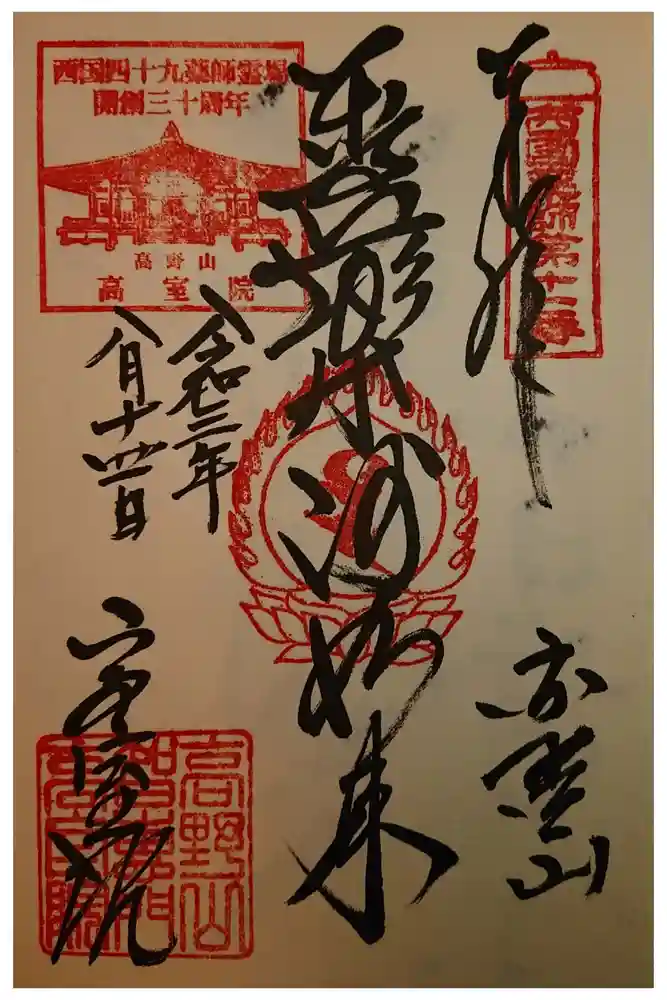 奉拝
西国薬師第十二番
高野山
如来
令和三年
八月十四日
西国四十九薬師霊場
開創三十周年
高野山
高室院
高室院
高野山
高室院